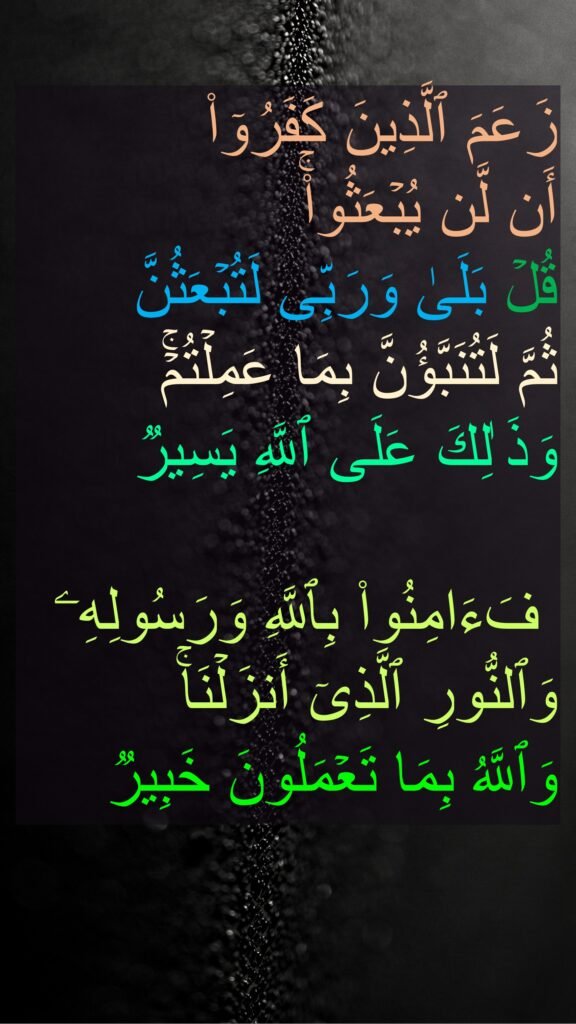 زَعَمَ ٱلَّذِينَ كَفَرُوٓا۟
أَن لَّن يُبۡعَثُوا۟ۚ
قُلۡ بَلَىٰ وَرَبِّی لَتُبۡعَثُنَّ
ثُمَّ لَتُنَبَّؤُنَّ بِمَا عَمِلۡتُمۡۚ
وَذَ ٰ⁠لِكَ عَلَى ٱللَّهِ یَسِیرࣱ
فَـَٔامِنُوا۟ بِٱللَّهِ وَرَسُولِهِۦ
وَٱلنُّورِ ٱلَّذِیۤ أَنزَلۡنَاۚ
وَٱللَّهُ بِمَا تَعۡمَلُونَ خَبِیرࣱ